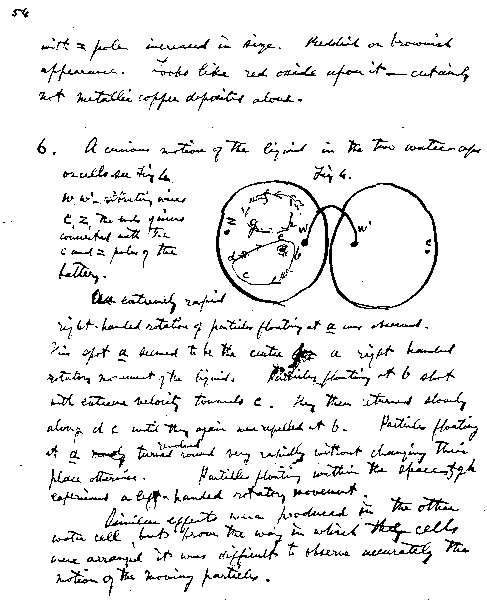 54
with z pole increased in size. Reddish or brownish
appearance. Looks like red oxide upon it — certainly
not metallic copper deposited alone.
6. A curious motion of the liquid in the two water-cups
or cells see Fig 6.
Fig 6.
W. W' = vibrating wires
C, Z, the wires
connected with the
C and Z poles of the
battery.
Z
W
W'
C
a
b
c
d
An extremely rapid
right-handed rotation of particles floating at a was observed.
This spot a seemed to be the centre for a right handed
rotatory movement of the liquid. Particles floating at b shot
with extreme velocity towards c. They then returned slowly
along d c until they again were repelled at b. Particles floating
at a turned round very rapidly without changing their
place otherwise. Particles floating within the space f g h
experienced a left-handed rotatory movement.
Similar effects were produced in the other
water cell, but from the way in which the cells
were arranged it was difficult to observe accurately the
motion of the moving particles.